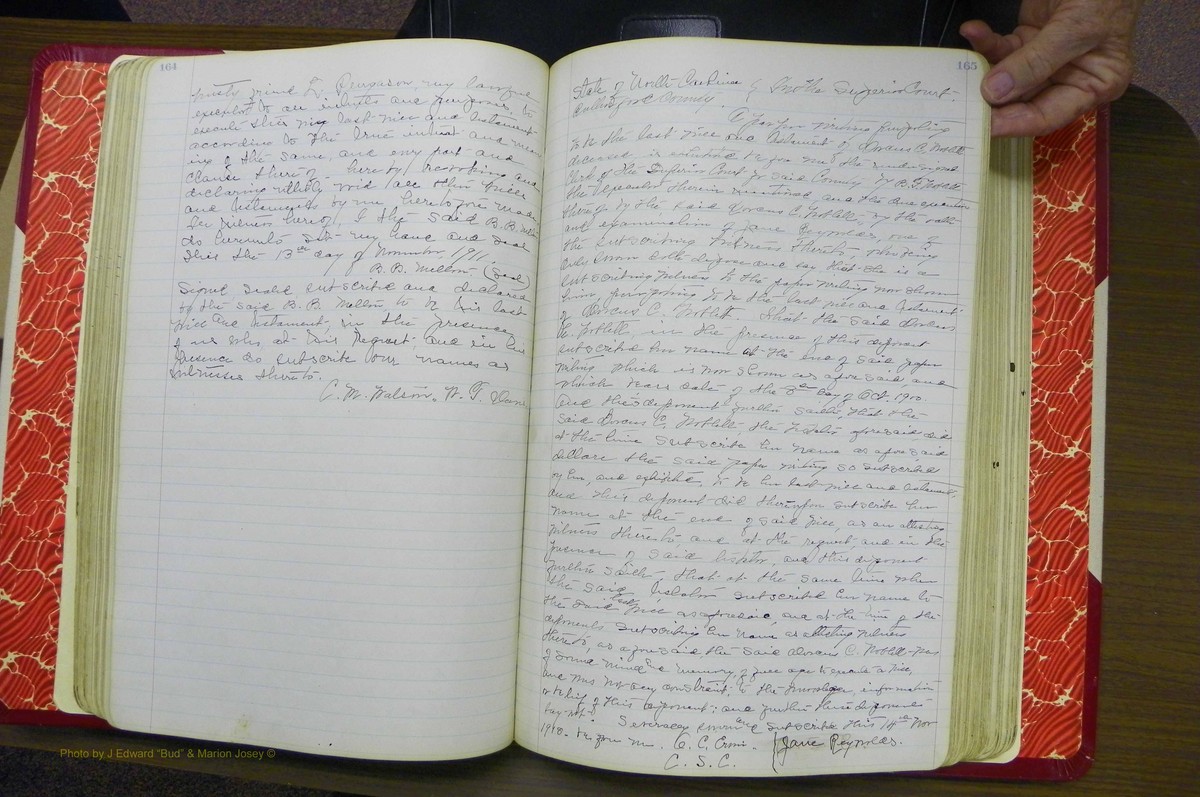 164
trusty friend L. Ferguson, my lawful
executor to all intents and purposes, to
execute this my last will and testament
according to the true intent and mean
ing of the same, and every part and
clause thereof - hereby revoking and
declaring utterly void all other wills
and testaments by me heretofore made.
In witness hereof, I the said B.B. Mellon
do hereunto set my hand and seal
this the 13th day of November, 1911.
B.B. Mellon (Seal)
Signed sealed subscribed and declared
by the said B.B. Mellon to be his last
will and testament, in the presence
of us who, at his request and in his
presence do subscribe our names as
witnesses thereto.
C. M. Watson. W. F.
165
State of North Carolina } In the Superior Court.
County.
A paper writing purporting
to be the last will and testament of Dorcas C. Noblett
deceased is exhibited before me the undersigned
Clerk of the Superior Court for said County by B.F. Noblett
the executor therein mentioned, and the due execution
thereof by the said Dorcas C. Noblett, by the oath
and examination of Jane Reynolds, one of
the subscribing witness thereto, who being
duly sworn doth depose and say that she is a
subscribing witness to the paper writing now shown
him, purporting to be the last will and testament
of Dorcas C. Noblett. That the said Dorcas
C. Noblett in the presence of this deponent
subscribed her name at the end of said paper
writing which is now shown as aforesaid and
which bears date of the day of Oct. 1900
And this deponent further saith, that the
said Dorcas C. Noblett the testator aforesaid, did
at the time subscribe her name as aforesaid
declare the said paper writing so subscribed
by her, and exhibited, to be her last will and testament,
and this deponent did thereupon subscribe her
name at the end of said will, as an attesting
witness thereto and at the request, and in the
presence of said testator, and this deponent
further saith, that at the same time when
the said testator subscribed her name to
the said last will as aforesaid, and at the time of the
deponents subscribing her name as attesting witness
thereto, as aforesaid the said Dorcas C. Noblett was
of sound mind and memory, of full age to execute a will,
and was not any constraint: to the knowledge, information
or belief of this deponent; and further these deponents
say not. Severally sworn and subscribed this 14th Nov
1910. before me. C. C. { Jane Reynolds.
C. S. C.
Photo by J Edward "Bud" & Marion Josey ©